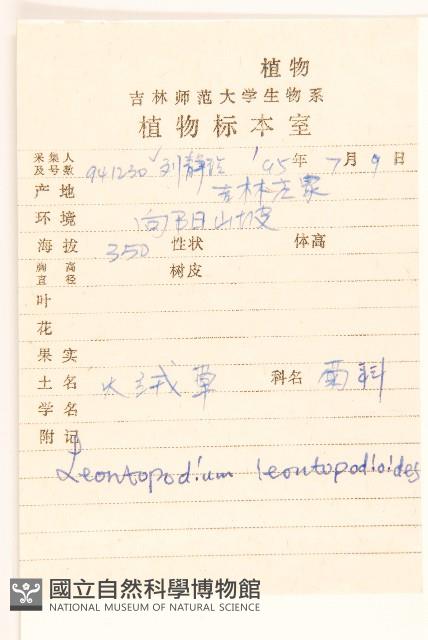 植物
吉林师范大学生物系
植物标本室
采集人及号数 941230 刘静玲 '95年 7月 9日
产地 吉林左家
环境 向阳山坡
海拔 350 性状 体高
胸高直径 树皮
叶
花
果实
土名 火绒草 科名 菊科
学名
附记
Leontopodium leontopodioides
國立自然科學博物館
NATIONAL MUSEUM OF NATURAL SCIENCE